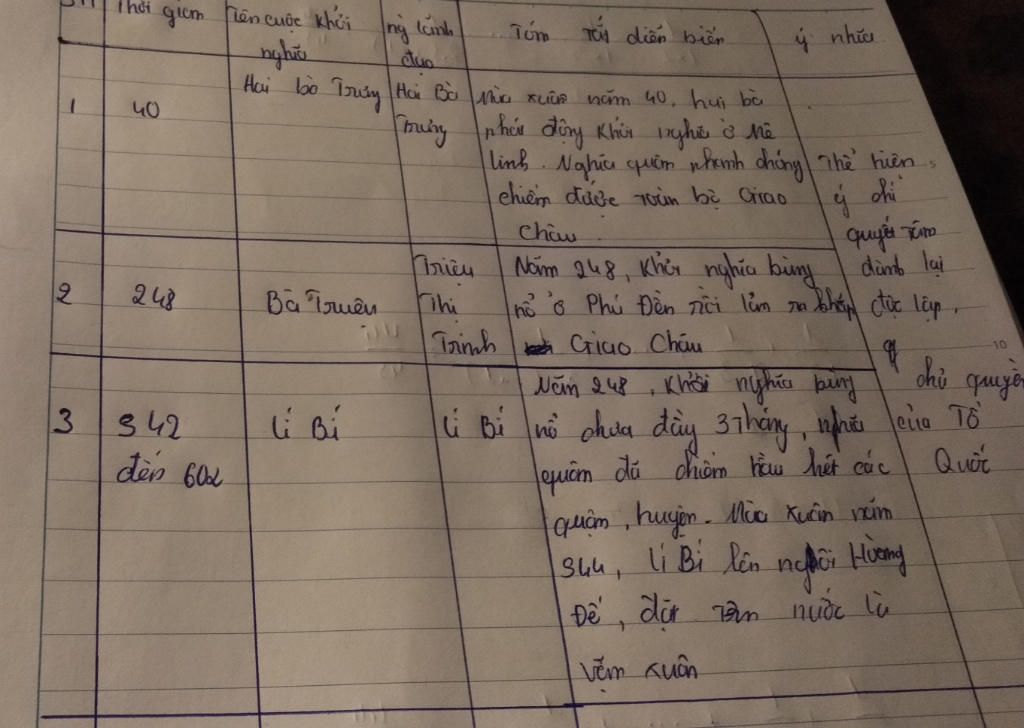 Thời gian
Tên cuộc khởi nghĩa
lãnh đạo
Tóm tắt diễn biến
ý nhĩa
1
40
Hai bà Trưng
Hai Bà
Trưng
Mùa xuân năm 40, hai bà
phát động khởi nghĩa ở Mê
linh. Nghĩa quân nhanh chóng
chiếm được toàn bộ Giao
Châu.
2
248
Bà Triệu
Triệu
Thị
Trinh
Năm 248, khởi nghĩa bùng
nổ ở Phú Đền rồi lan ra khắp
Giao Châu
3
542
đến 602
Lí Bí
Lí Bí
Năm 248, khởi nghĩa bùng
nổ chưa đầy 3 tháng, nghĩa
quân đã chiếm hầu hết các
quận, huyện. Mùa xuân năm
544, Lí Bí lên ngôi Hoàng
Đế, đặt tên nước là
Vạn xuân
Thể hiện
ý chí
quyết tâm
dành lại
độc lập,
chủ quyền
của Tổ
Quốc
10